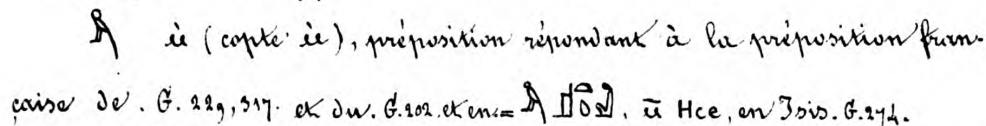 𓀀 ìè (copte ìè), préposition répondant à la préposition fran-
çaise de. G. 229, 317. et du. G. 202. et en. = ū Hce, en Isis. G. 274.